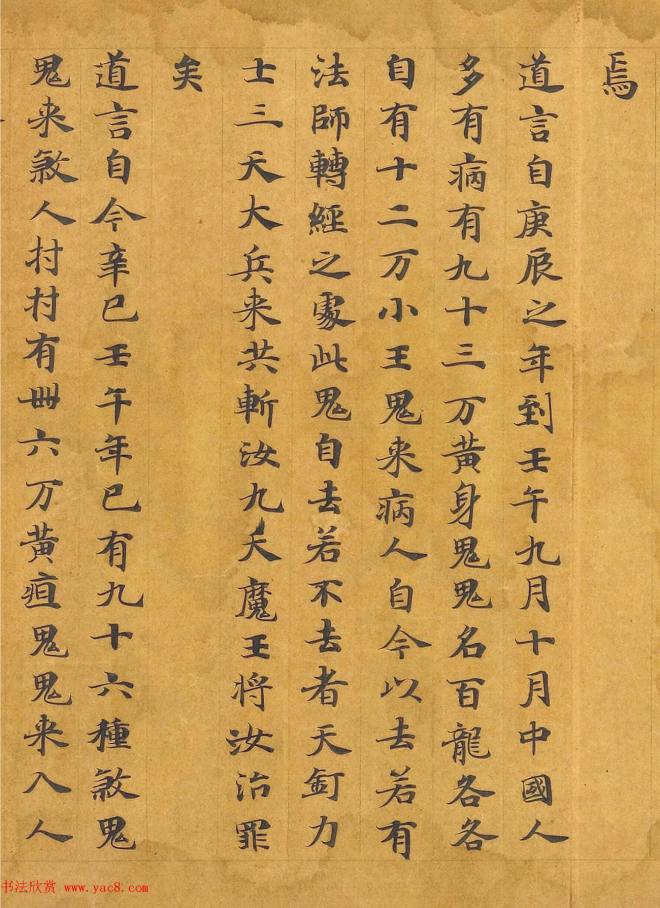 焉
道言自庚辰之年到壬午九月十月中國人
多有病有九十三万黃身鬼鬼名百龍各各
自有十二万小王鬼来病人自今以去若有
法師轉經之處此鬼自去若不去者天釘力
士三天大兵来共斬汝九天魔王将汝治罪
矣
道言自今辛巳壬午年已有九十六種煞鬼
鬼来煞人村村有卌六万黃疸鬼鬼来入人
书法欣赏 www.yac8.com